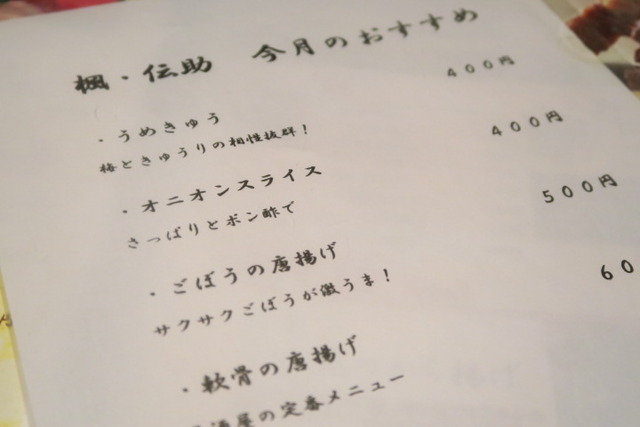 楓・伝助 今月のおすすめ
・うめきゅう 400円
梅ときゅうりの相性抜群!
・オニオンスライス 400円
さっぱりとポン酢で
・ごぼうの唐揚げ 500円
サクサクごぼうが激うま!
・軟骨の唐揚げ 60
酒屋の定番メニュー